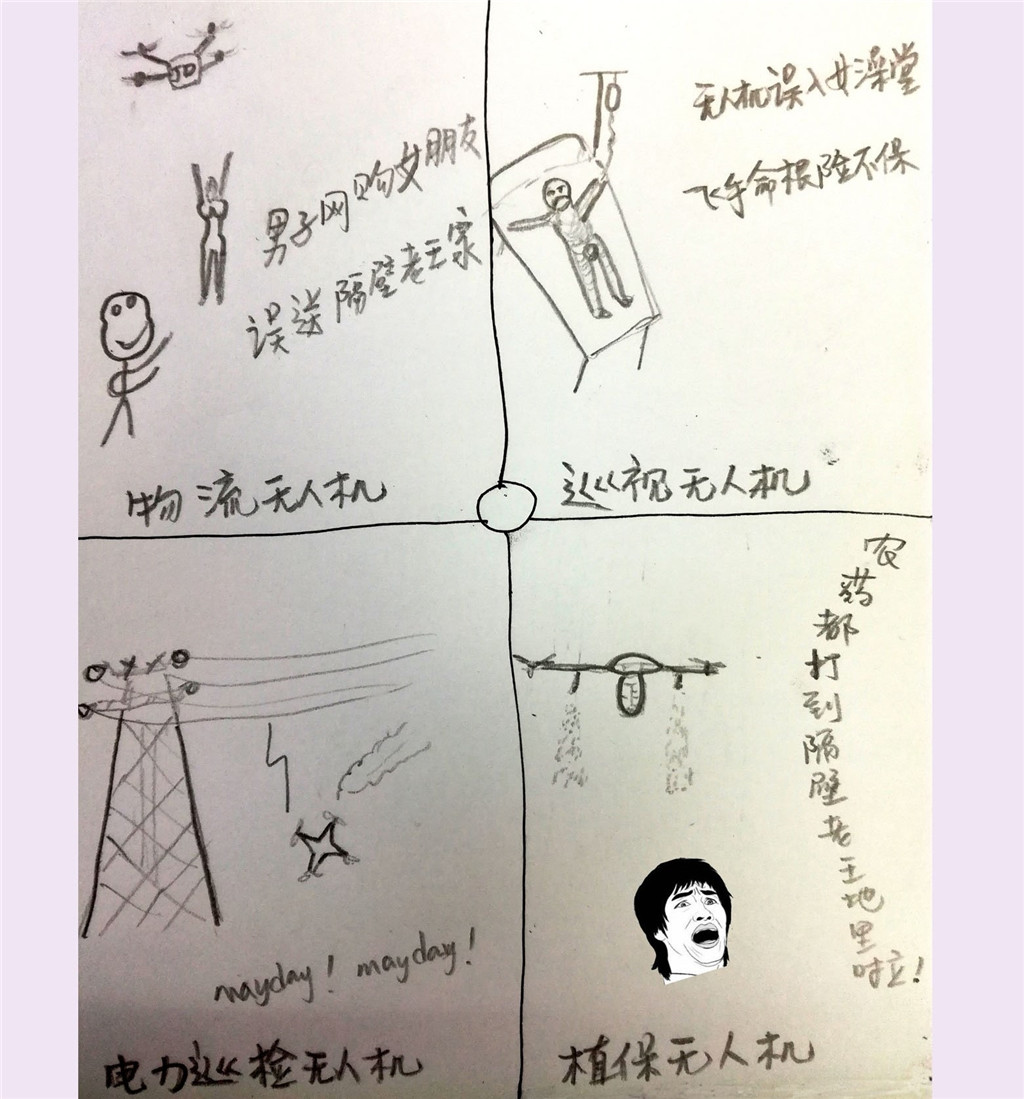 男子网购女朋友
误送隔壁老王家
物流无人机
无人机误入女澡堂
飞手命根险不保
巡视无人机
mayday! mayday!
电力巡检无人机
农药都打到隔壁老王地里啦!
植保无人机